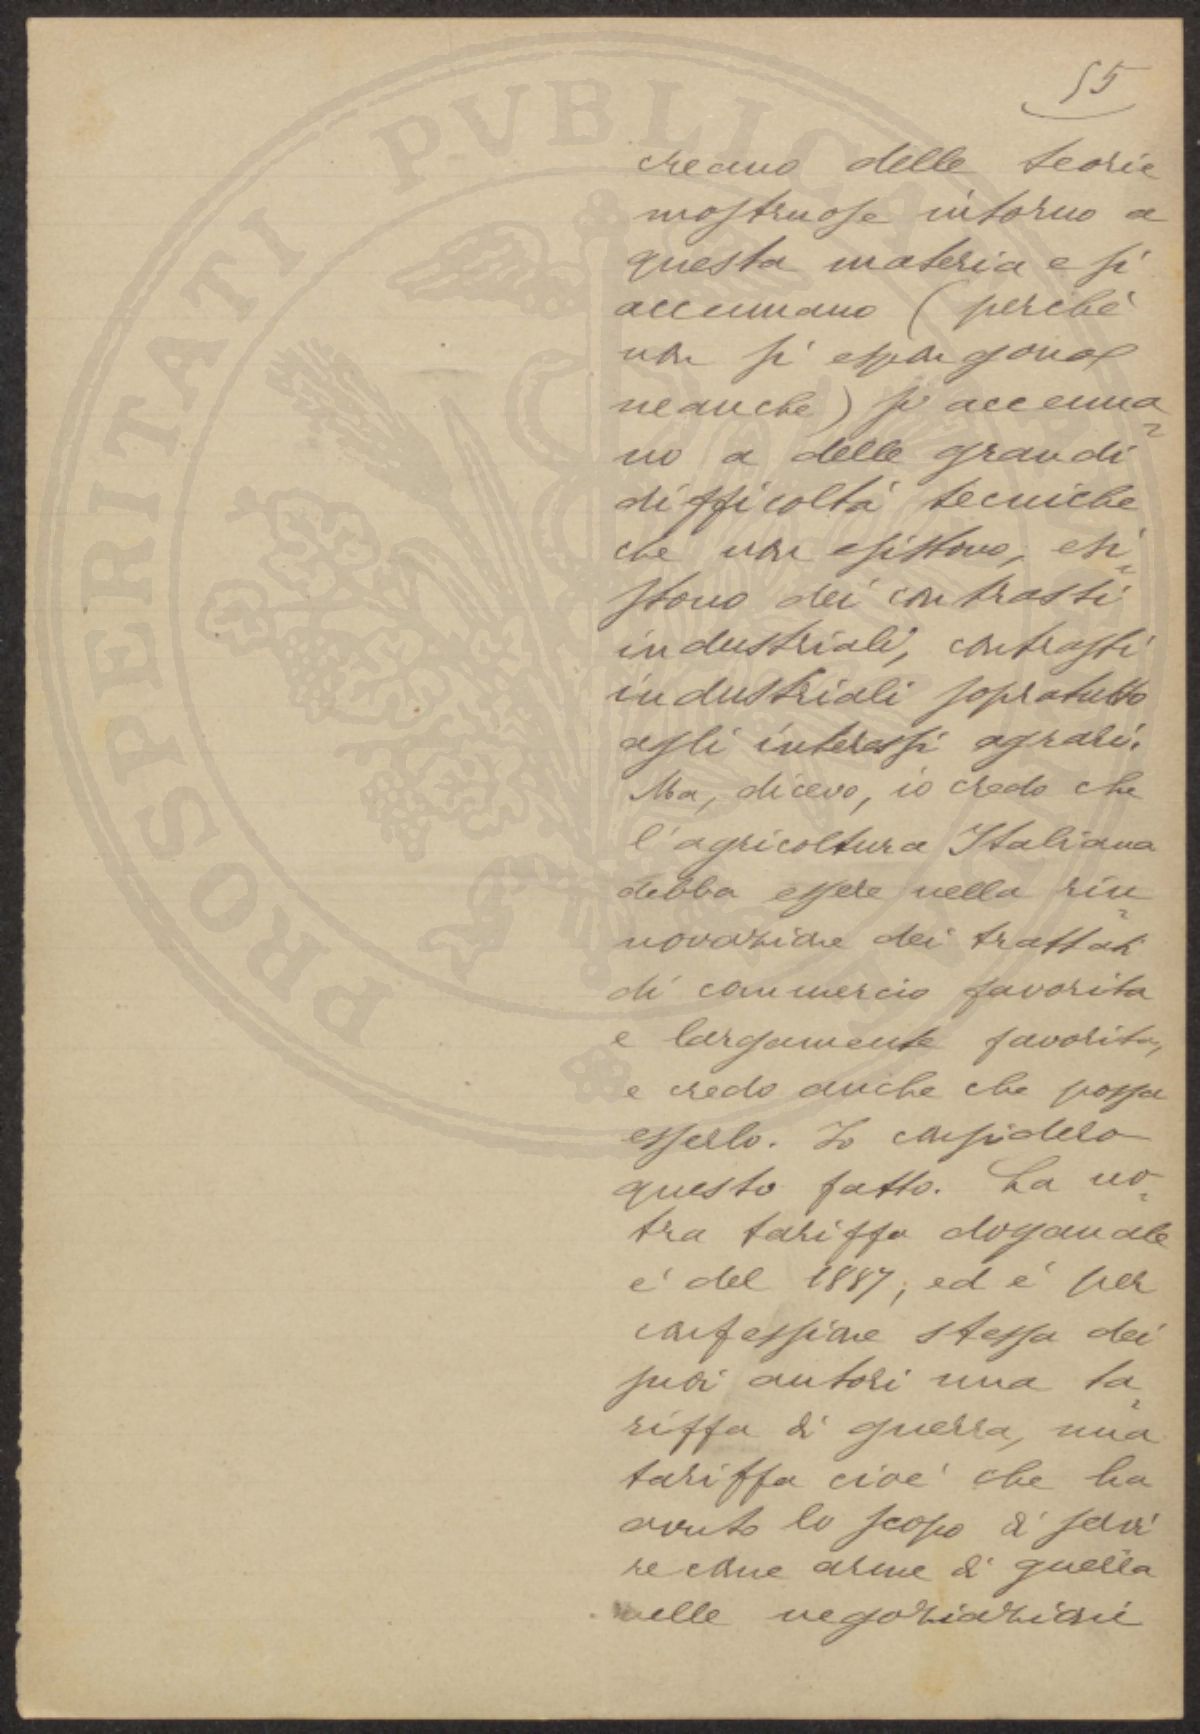 55
creano delle teorie
mostruose intorno a
questa materia e si
accennano (perché
non si espongono
neanche) si accenna=
no a delle grandi
difficoltà tecniche
che non esistono; esi=
stono dei contrasti
industriali, contrasti
industriali sopratutto
agli interessi agrari.
Ma, dicevo, io credo che
l'agricoltura Italiana
debba essere nella rin=
novazione dei trattati
di commercio favorita
e largamente favorita,
e credo anche che possa
esserlo. Io considero
questo fatto. La no=
tra tariffa doganale
é del 1887, ed é per
confessione stessa dei
suoi autori una ta=
riffa di guerra, una
tariffa cioé che ha
avuto lo scopo di servi
re come arme di guerra
nelle negoziazioni
PROSPERITATI PVBLICAE